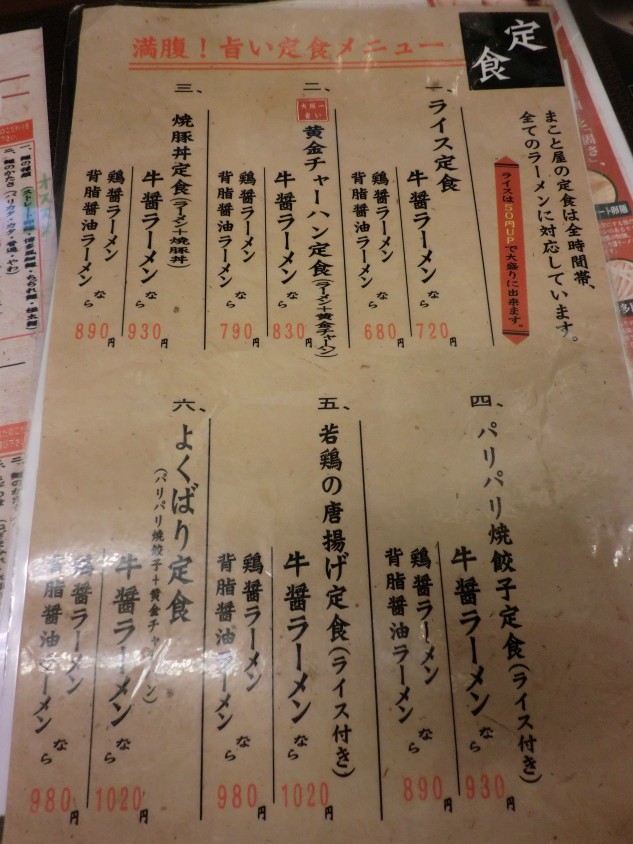 定食
満腹！旨い定食メニュー
まこと屋の定食は全時間帯、
全てのラーメンに対応しています。
ライスは50円UPで大盛りに出来ます。
一、
ライス定食
牛醤ラーメン なら 720円
鶏醤ラーメン
背脂醤油ラーメン なら 680円
二、
黄金チャーハン定食(ラーメン+黄金チャーハン)
牛醤ラーメン なら 830円
鶏醤ラーメン
背脂醤油ラーメン なら 790円
三、
焼豚丼定食(ラーメン+焼豚丼)
牛醤ラーメン なら 930円
鶏醤ラーメン
背脂醤油ラーメン なら 890円
四、
パリパリ焼餃子定食(ライス付き)
牛醤ラーメン なら 930円
鶏醤ラーメン
背脂醤油ラーメン なら 890円
五、
若鶏の唐揚げ定食(ライス付き)
牛醤ラーメン なら 1020円
鶏醤ラーメン
背脂醤油ラーメン なら 980円
六、
よくばり定食
(パリパリ焼餃子+黄金チャーハン)
牛醤ラーメン なら 1020円
鶏醤ラーメン
背脂醤油ラーメン なら 980円